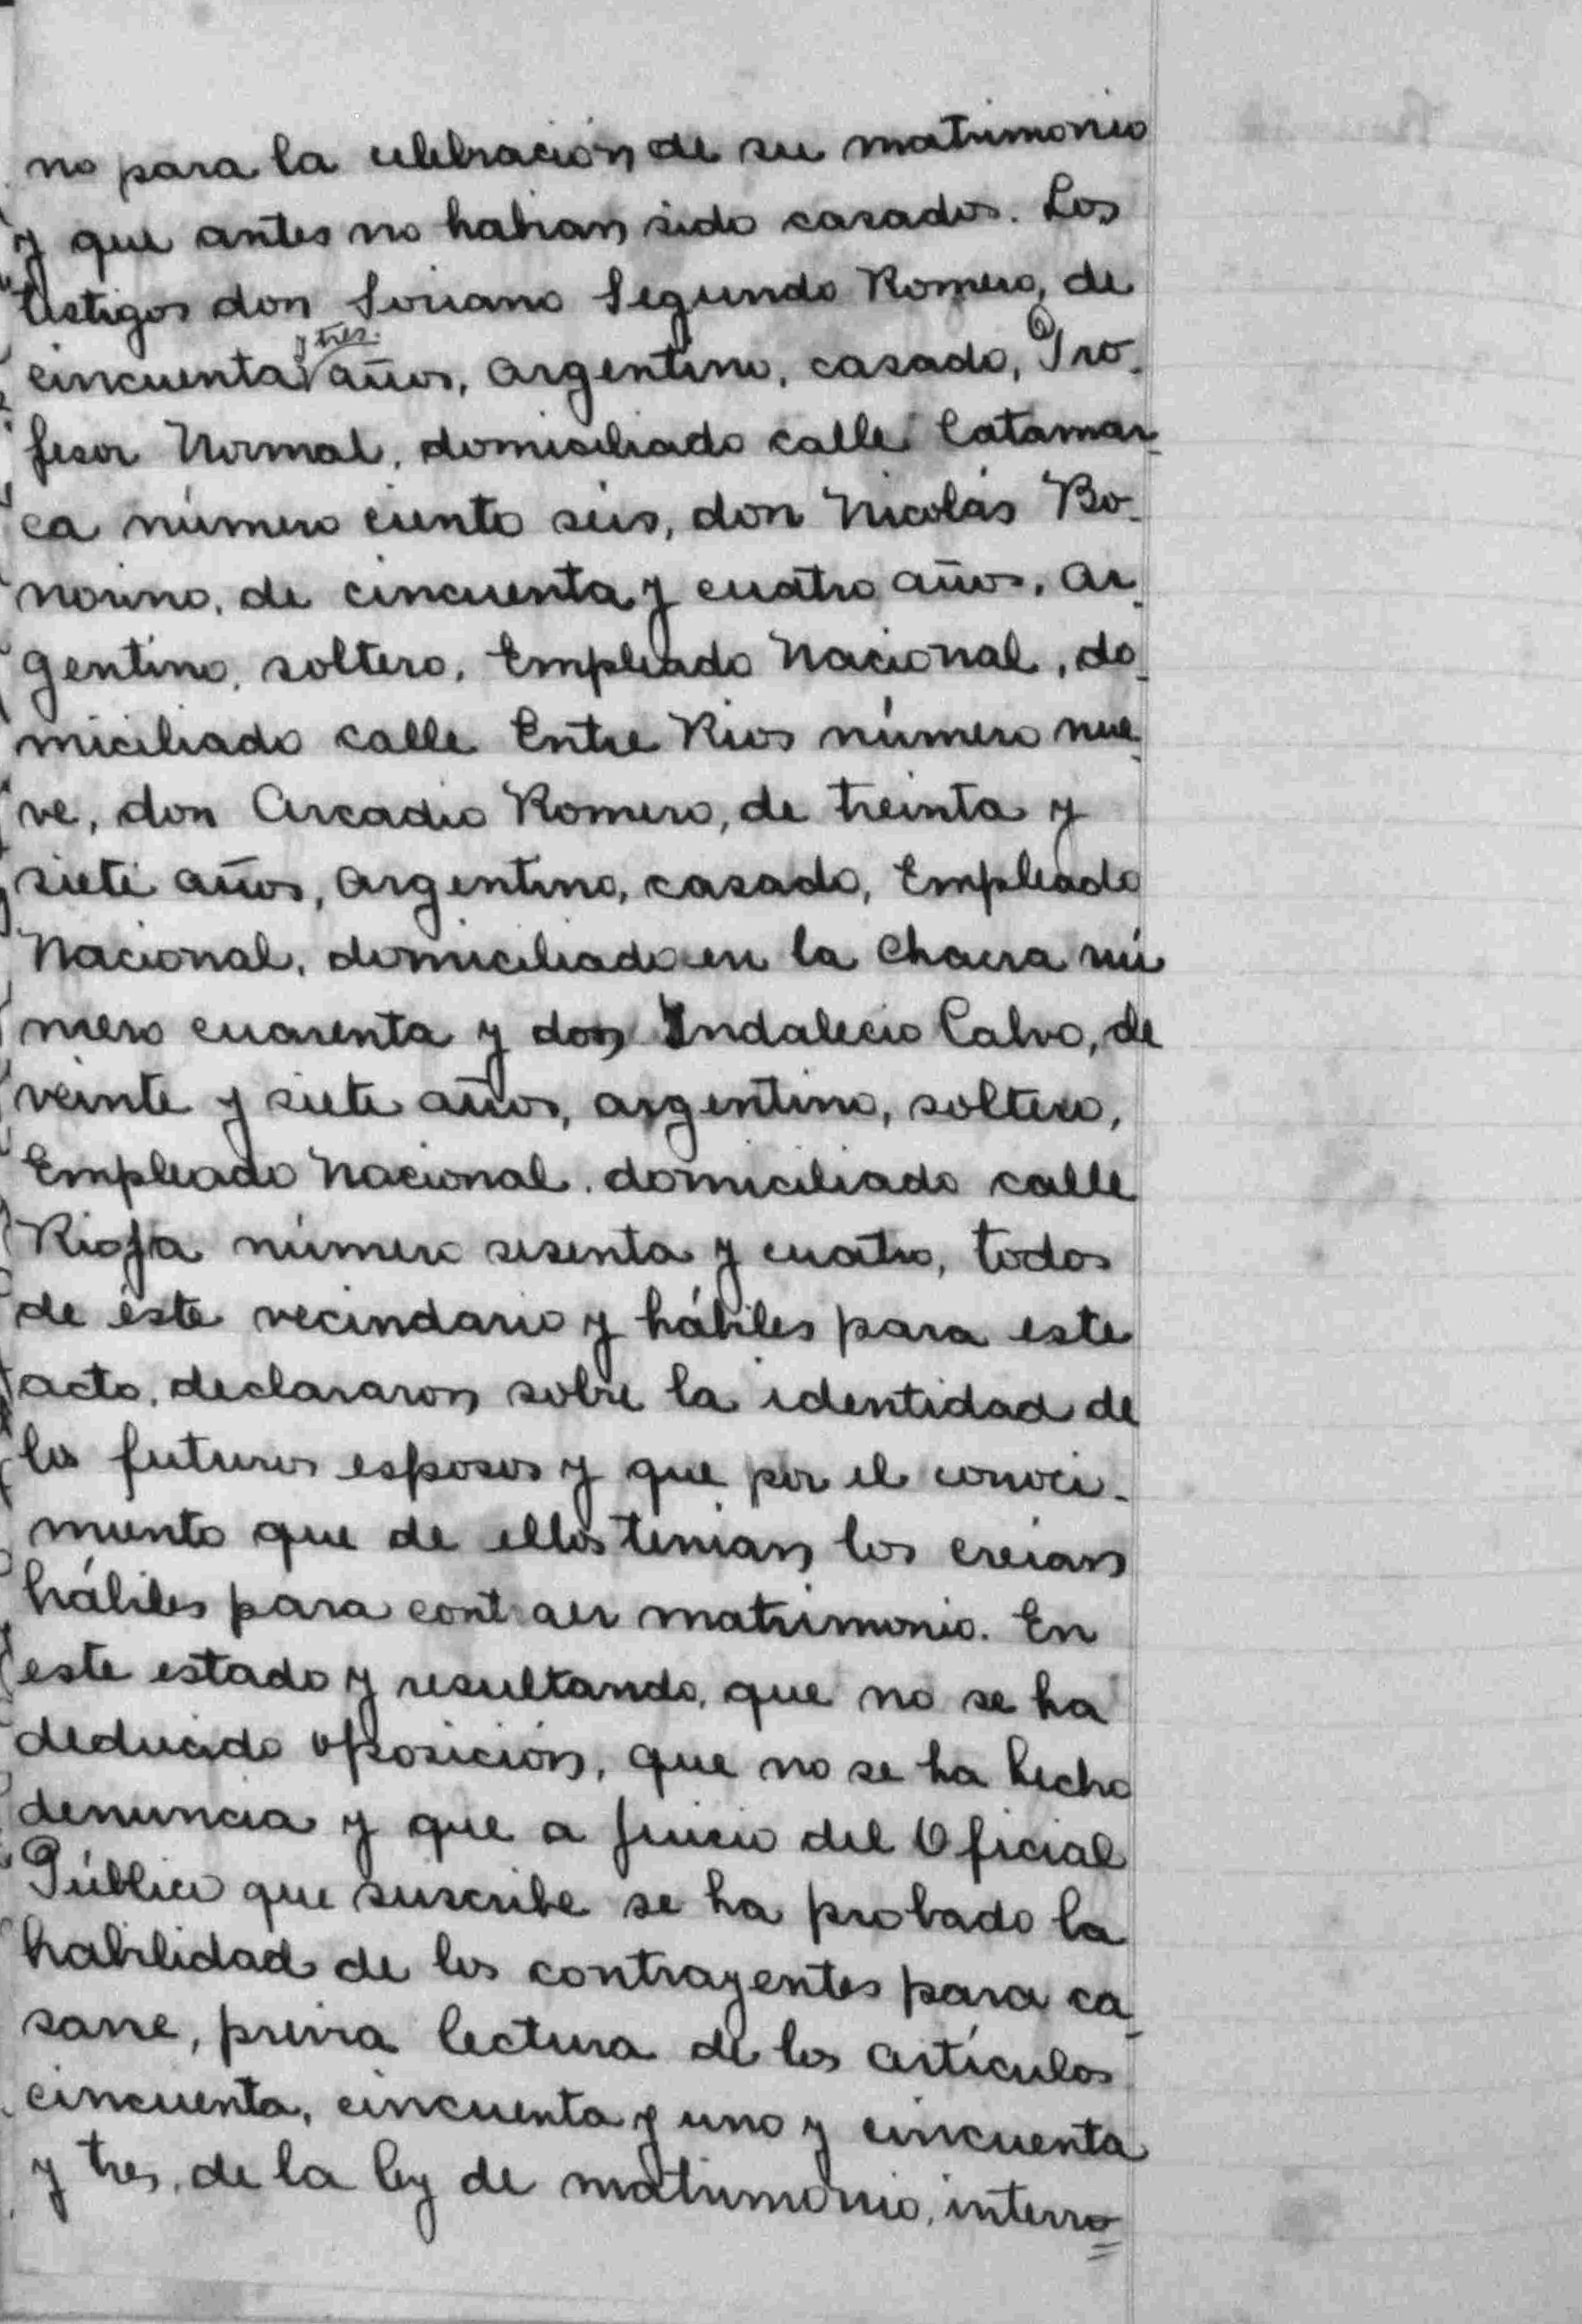 no para la celebración de su matrimonio
y que antes no habian sido casados. Los
testigos don Soriano Segundo Romero, de
cincuenta y tres años, argentino, casado, Pro-
fesor Normal, domiciliado calle Catamar-
ca número ciento seis, don Nicolás Bo-
norino, de cincuenta y cuatro años, ar-
gentino, soltero, Empleado Nacional, do-
miciliado calle Entre Rios número nue-
ve, don Arcadio Romero, de treinta y
siete años, argentino, casado, Empleado
Nacional, domiciliado en la Chacra nú
mero cuarenta y don Indalecio Calvo, de
veinte y siete años, argentino, soltero,
Empleado Nacional. domiciliado calle
Rioja número sesenta y cuatro, todos
de éste vecindario y hábiles para este
acto, declararon sobre la identidad de
los futuros esposos y que por el conoci-
miento que de ellos tenian los creian
hábiles para contraer matrimonio. En
este estado y resultando, que no se ha
deducido oposición, que no se ha hecho
denuncia y que a juicio del Oficial
Público que suscribe se ha probado la
habilidad de los contrayentes para ca-
sarse, previa lectura de los artículos
cincuenta, cincuenta y uno y cincuenta
y tres, de la ley de matrimonio, interro=